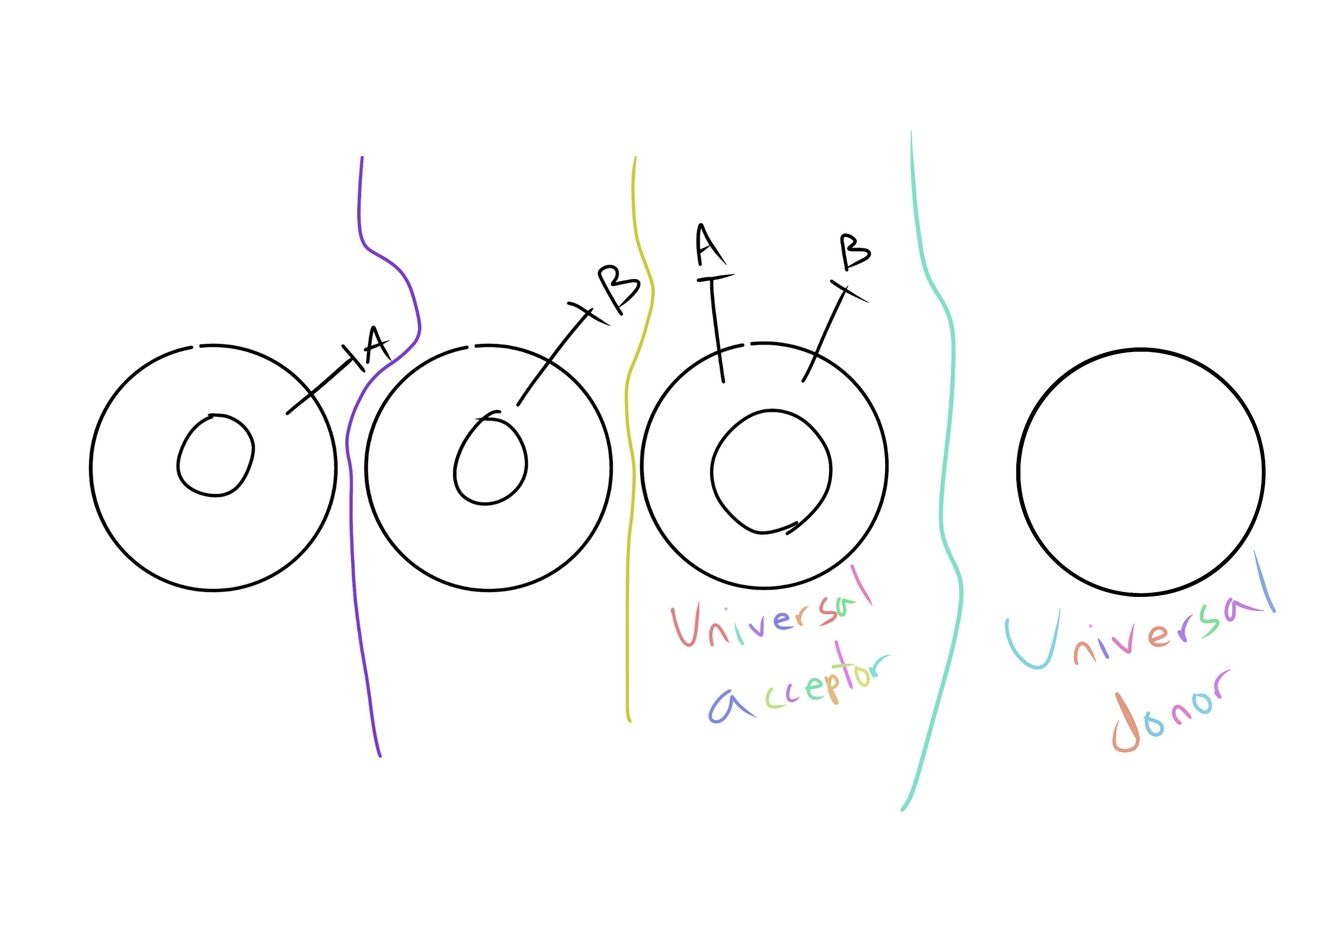 A
B
A
B
Universal
acceptor
Universal
donor